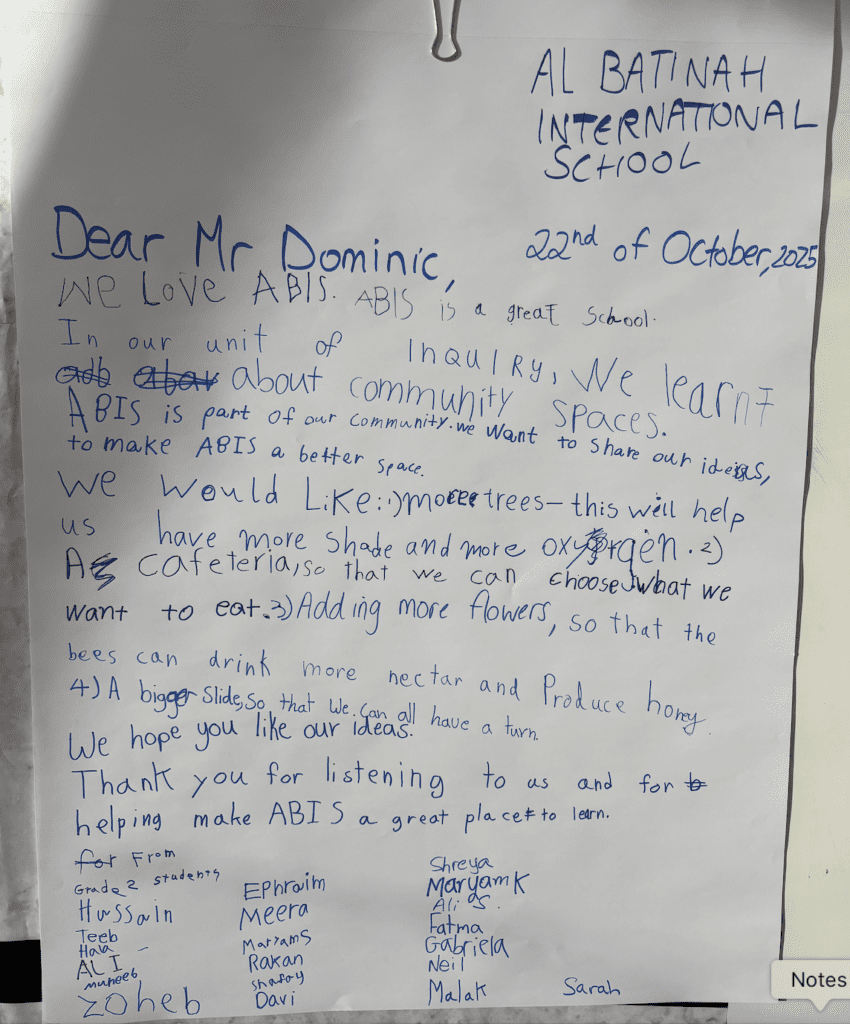 AL BATINAH
INTERNATIONAL
SCHOOL
22nd of October, 2025
Dear Mr Dominic,
We Love ABIS. ABIS is a great School.
In our unit of InquIRy, We learnt
about community spaces.
ABIS is part of our community. we want to share our ideas,
to make ABIS a better space.
We would Like: 1) more trees – this will help
us have more shade and more oxygen. 2)
A cafeteria, so that we can choose what we
want to eat. 3) Adding more flowers, so that the
bees can drink more nectar and Produce honey.
4) A bigger Slide, So that We Can all have a turn.
We hope you like our ideas.
Thank you for listening to us and for
helping make ABIS a great place to learn.
for From
Grade 2 students
Hussain
Teeb
Hala
ALI
muneeb
Zoheb
Ephraim
Meera
Maryam S
Rakan
Davi
Shreya
Maryam K
Ali S.
Fatma
Gabriela
Neil
Malak
Sarah
Notes